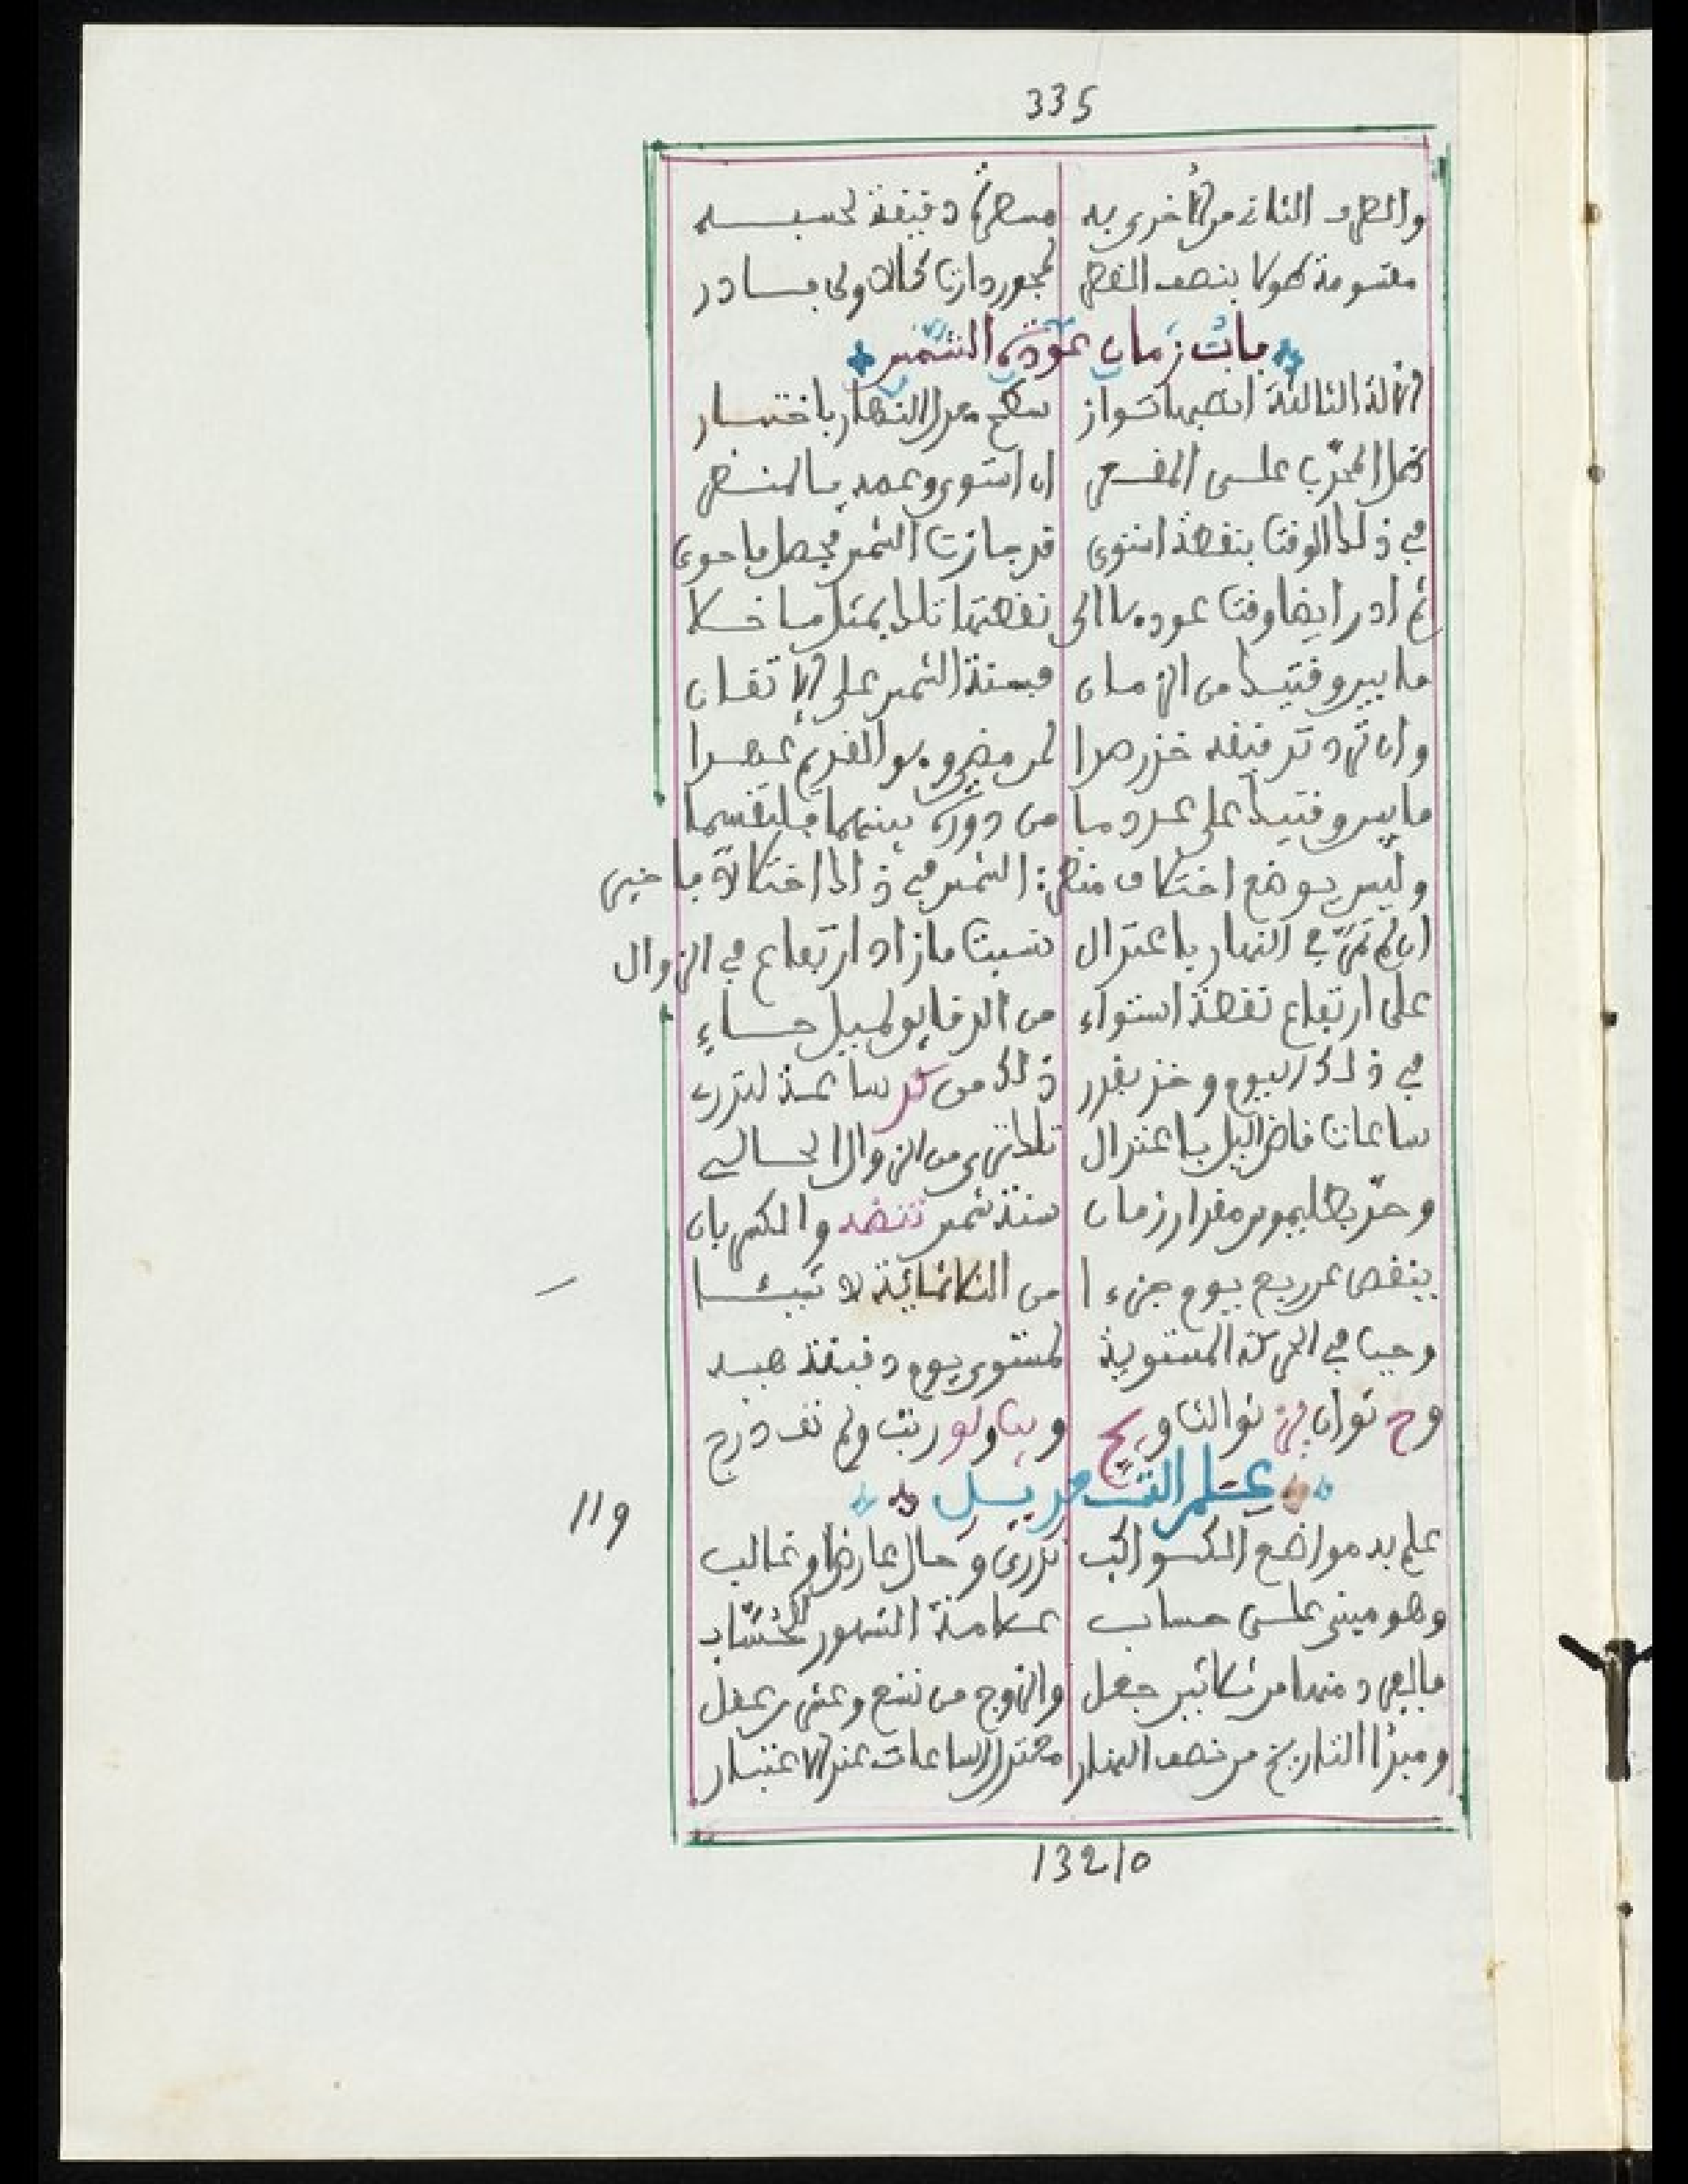 335
والطرف الثان من الأخرى به مسطرة دقيقة لحسبه
مقسومة طولا بنصف القطر لمحور دارت كالاولى فادر
باب زمان عودة الشمس
الآلة الثالثة انصبها تواز سطح معدل النهار باختبار
ظل المحدب على المقعر ان استوى وعمه بالمنظر
في ذلك الوقت بنقطة استوى قد جازت الشمس فحصل ما حوى
ثم ادر ايضا وقت عودها الى نقطتها تلك بمثل ما خلا
ما بين وقتيك من الزمان فسنة الشمس على الاتقان
وان ترد تدقيقه خذ رصدا لمن مضى وهو القديم عهدا
ما بين وقتيك على عدد ما من دورة بينهما فلتقسما
وليس يوضع اختلاف منظر: الشمس في ذلك اختلالا ما خبى
ان لم تمر في النهار باعتدال نسبت ما زاد ارتفاع في الزوال
على ارتفاع نقطة استواء من الدقايق لميل جاء
في ذلك اليوم وخذ بقدر ذلك من كد ساعة لتدر
ساعات فاضل الميل باعتدال تلك ترى من الزوال الحالي
وحد بطليموس مقدار زمان سنة شمس شسه والكسر بان
ينقص عن ربع يوم جزءا من الثلاثمائة لا تبئا
وجا في الحركة المستوية لمستوى يوم دقيقة هيه
وح ثوان ثوالثا ويج ويب ولو رتب ولم تف درج
علم التعديل
119
علم به مواضع الكواكب تدرى وحال عارض او غالب
وهو مبنى على حساب علامة الشهور للحساب
فالفرد منها من ثلاثين جعل والزوج من تسع وعشرين عقل
ومبدأ التاريخ من نصف النهار معتدل الساعات عند الاعتبار
13210